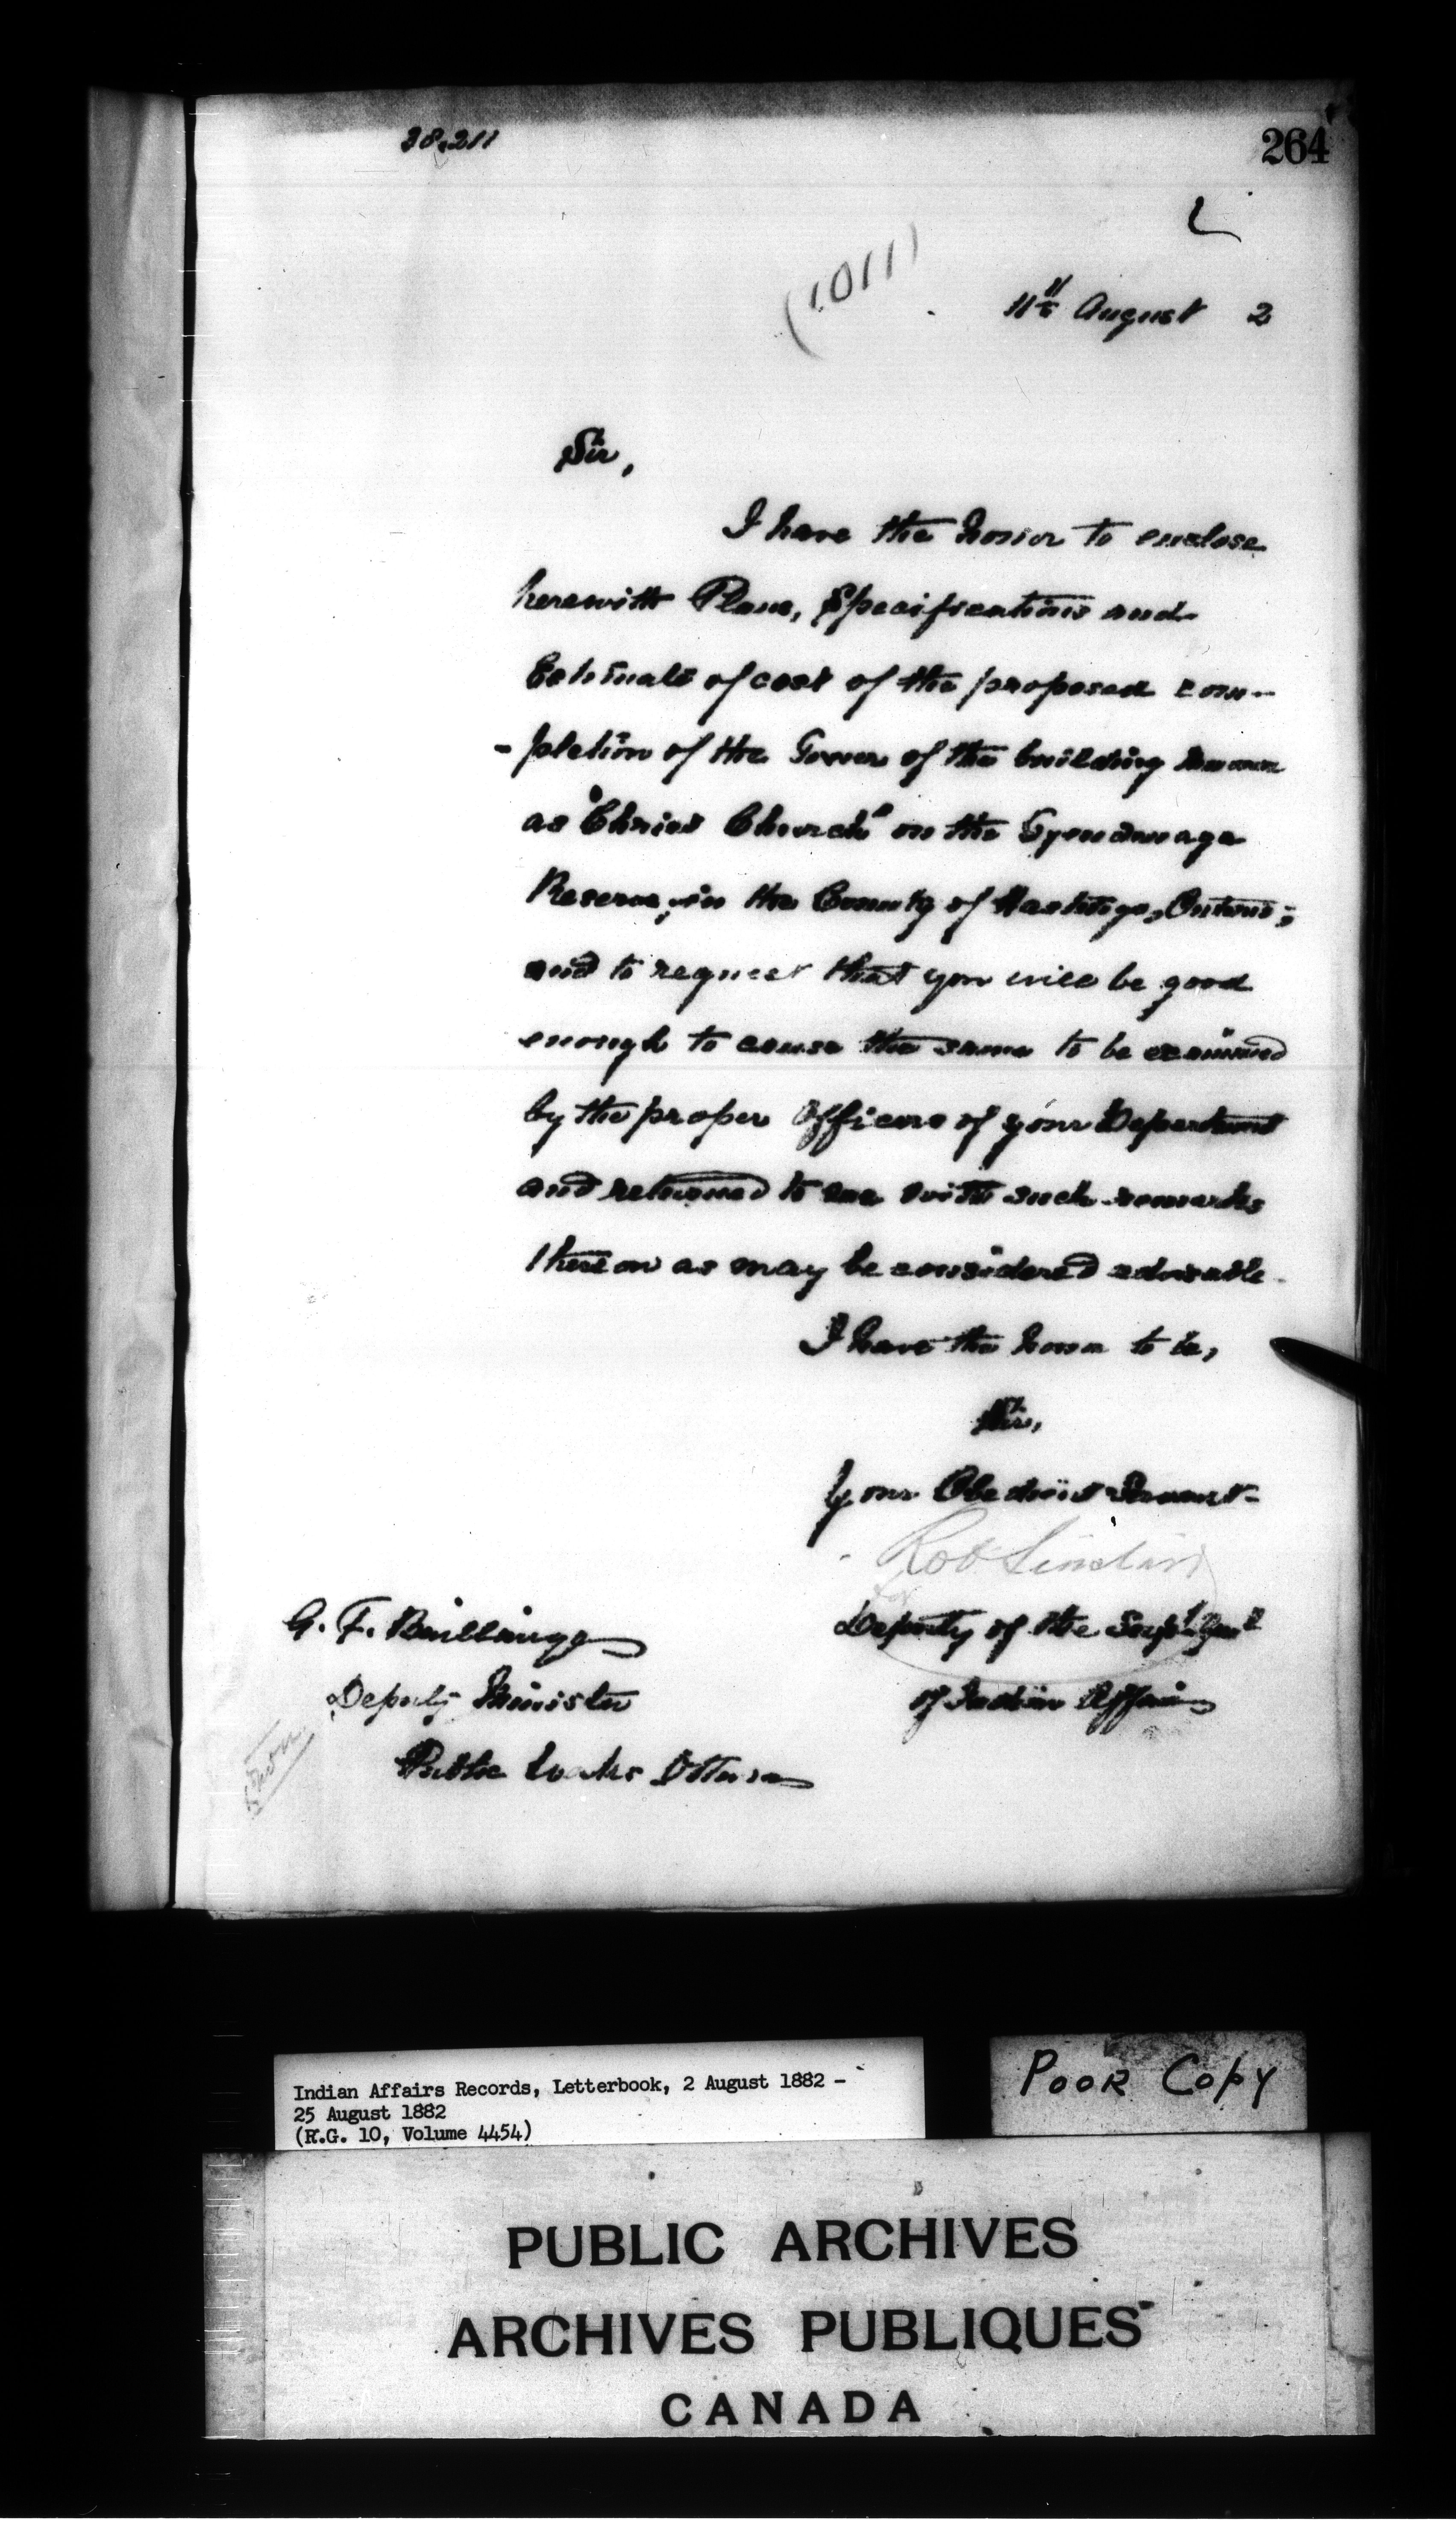 38,211
264
(1011)
11th August 2
Sir,
I have the honor to enclose
herewith Plans, Specifications and
Estimate of cost of the proposed com-
-pletion of the Tower of the building known
as "Christ Church" on the Tyendinaga
Reserve, in the County of Hastings, Ontario;
and to request that you will be good
enough to cause the same to be examined
by the proper Officers of your Department
and returned to me with such remarks
thereon as may be considered advisable.
I have the honor to be,
Sir,
Your Obedient Servant
Rob Sinclair
for
Deputy of the Supt Genl
of Indian Affairs
G. F. Baillairge
Deputy Minister
Public Works Ottawa
Indian Affairs Records, Letterbook, 2 August 1882 -
25 August 1882
(R.G. 10, Volume 4454)
POOR COPY
PUBLIC ARCHIVES
ARCHIVES PUBLIQUES
CANADA